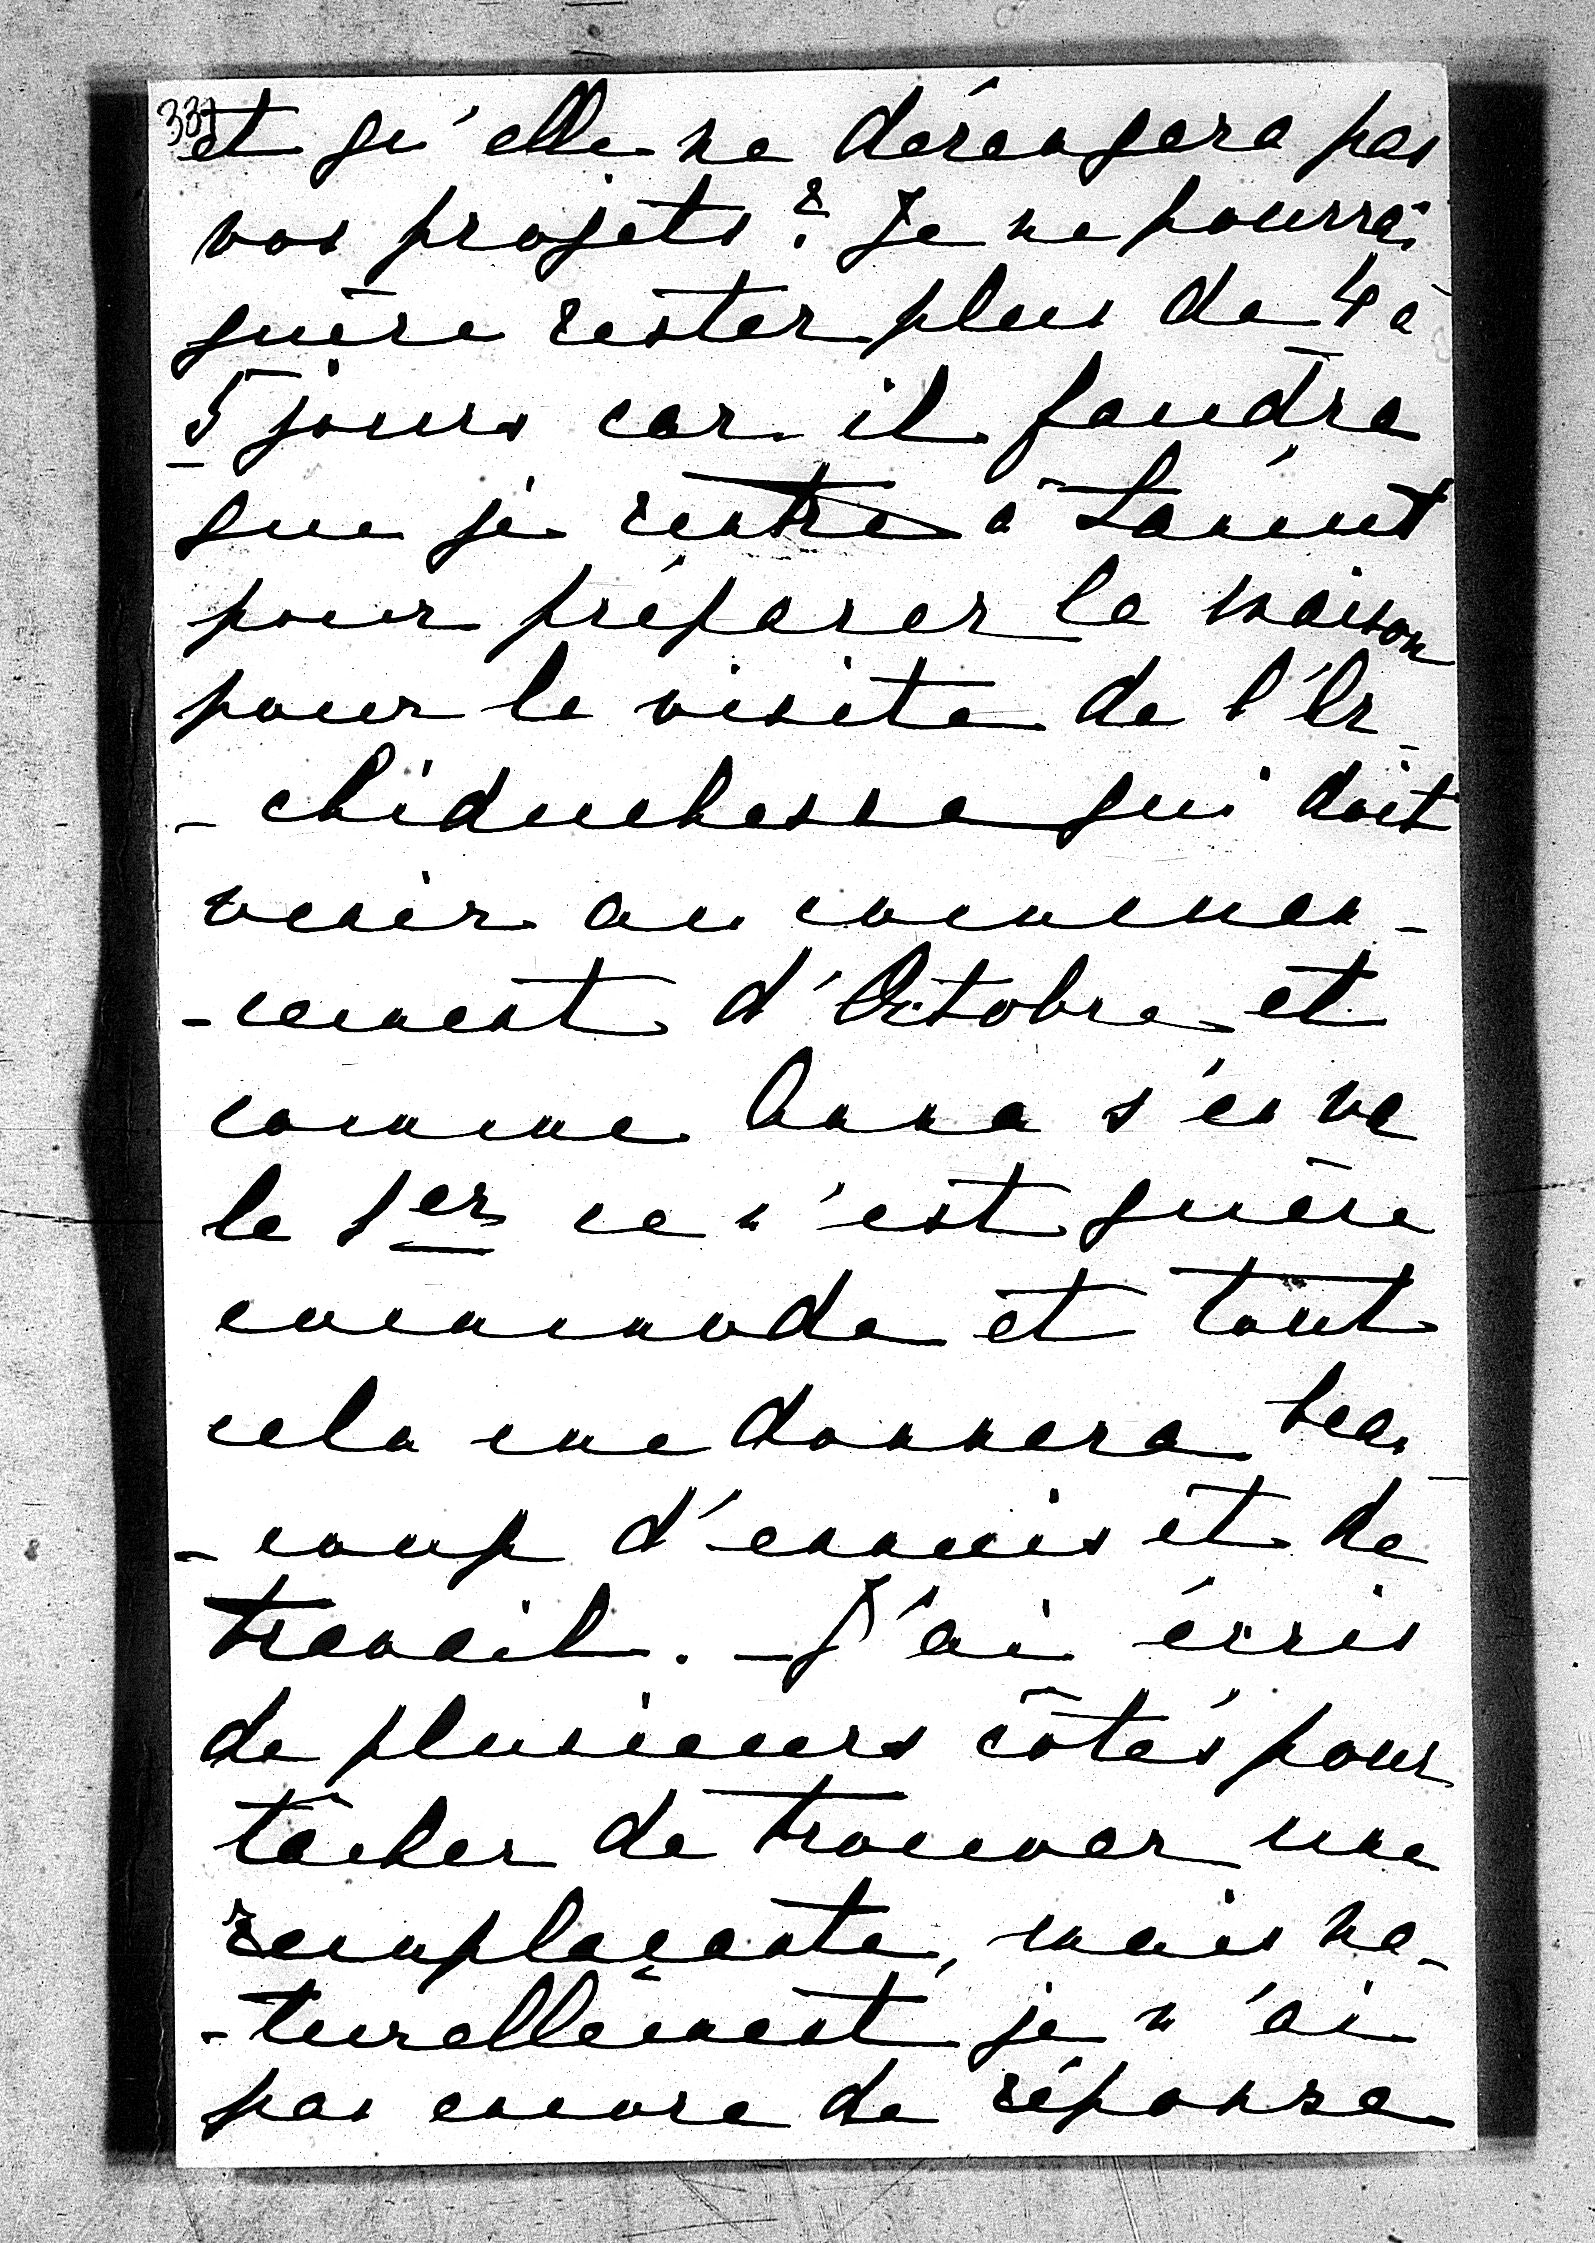 331
et qu'elle ne dérangera pas
vos projets? Je ne pourrai
guère rester plus de 4 à
5 jours car il faudra
que je rentre à Lancut
pour préparer la maison
pour la visite de l'Ar-
-chiduchesse qui doit
venir au commen-
-cement d'Octobre et
comme Anna s'en va
le 1er ce n'est guère
commode et tout
cela me donnera beau-
-coup d'ennuis et de
travail. - J'ai écris
de plusieurs côtés pour
tâcher de trouver une
remplaçante, mais na-
-turellement je n'ai
pas encore de réponse